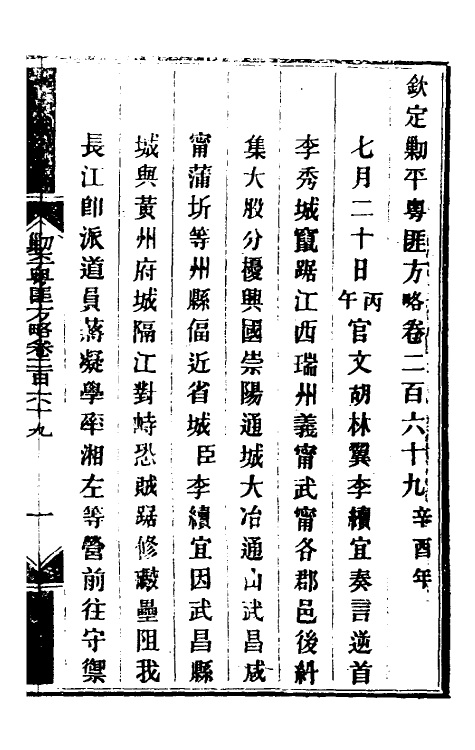 欽定勦平粵匪方略卷二百六十九辛酉年
七月二十日丙午官文胡林翼李續宜奏言逆首
李秀城竄踞江西瑞州義甯武甯各郡邑後糾
集大股分擾興國崇陽通城大冶通山武昌咸
甯蒲圻等州縣偪近省城臣李續宜因武昌縣
城與黃州府城隔江對峙恐賊踞修藪壘阻我
長江卽派道員蔣凝學率湘左等營前往守禦
勦平粵匪方略卷二百六十九 一